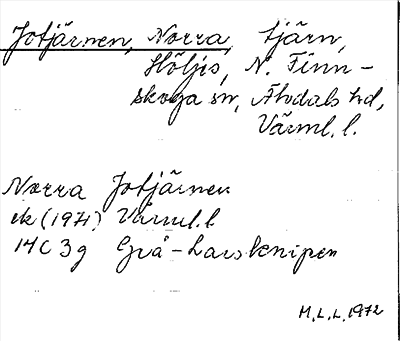 Jotjärnen, Norra, tjärn,
Höljes, N. Finn-
skoga sn, Älvdals hd,
Värml. l.
Norra Jotjärnen
ek (1971) Värml. l
14C 3g Grå-Larsknipen
M.L.L. 1972